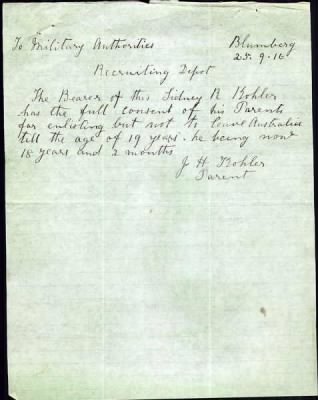 To Military Authorities Blumberg
25.9.16
Recruiting Depot
The Bearer of this Sidney R Kohler
has the full consent of his Parents
for enlisting but not to Leave Australia
till the age of 19 years. he being now
18 years and 2 months
J H Kohler
Parent